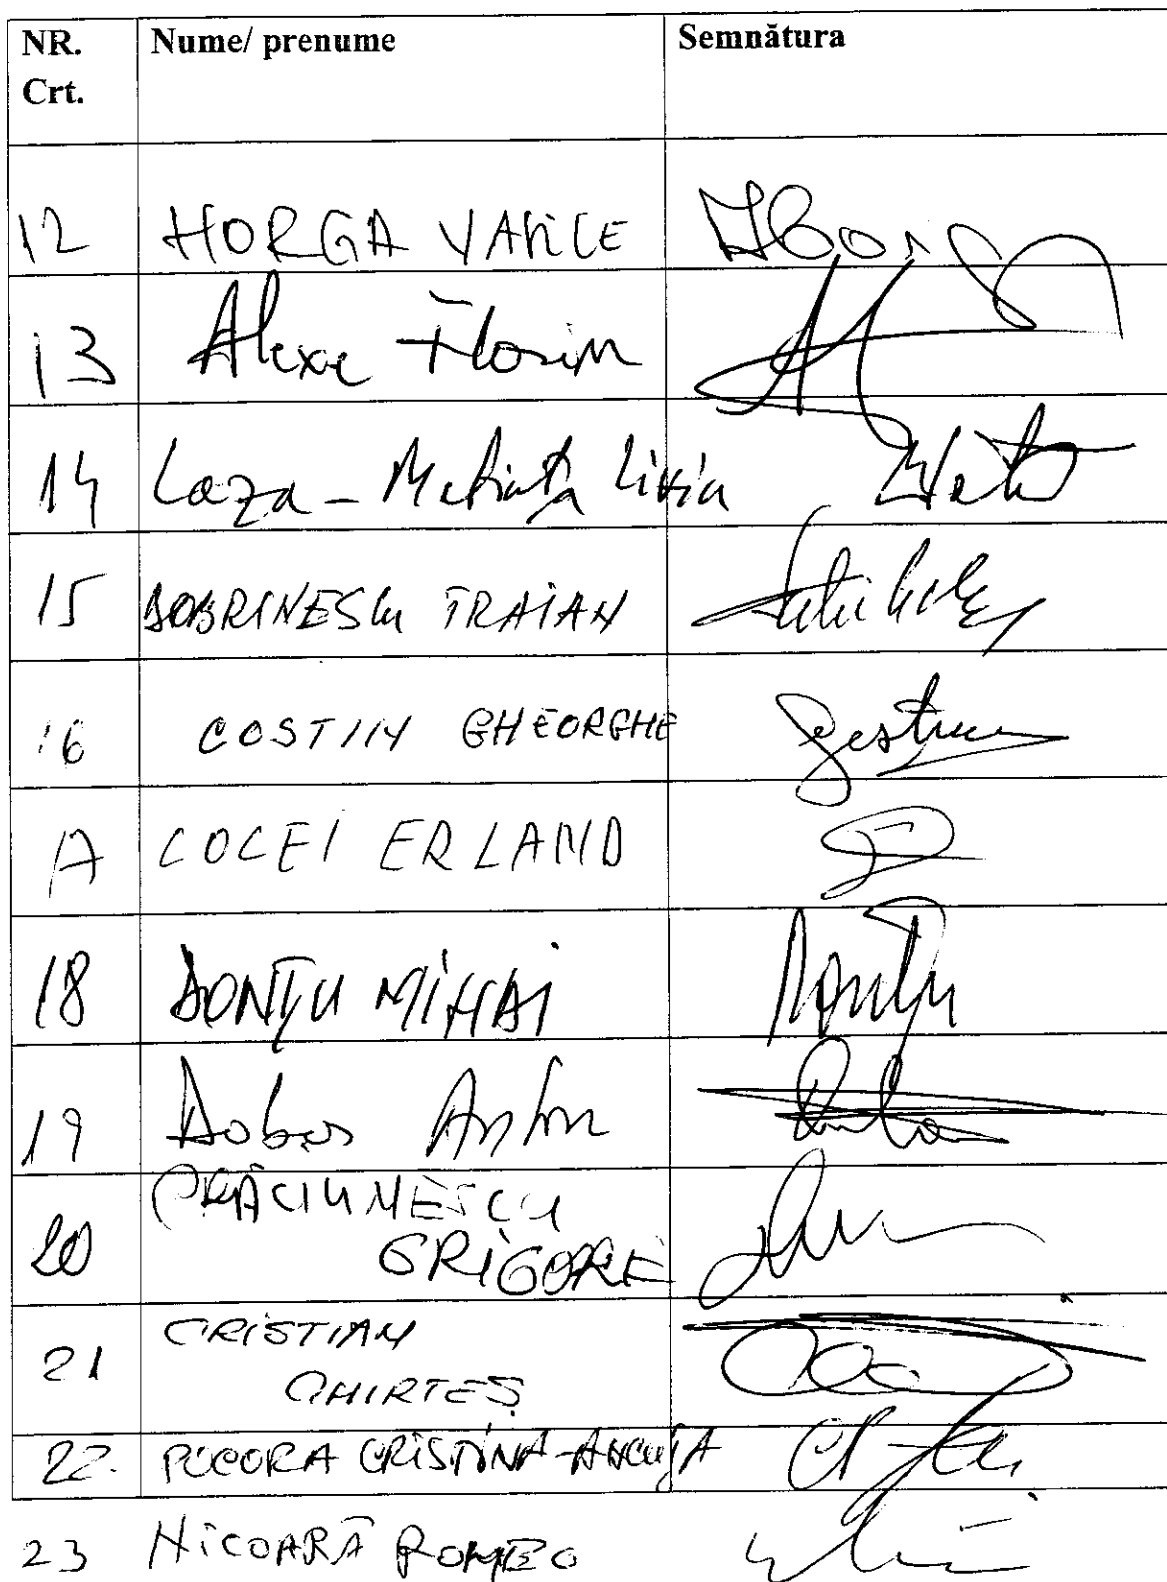 NR. Crt. Nume/ prenume Semnătura
12 HORGA VASILE
13 Alexe Florin
14 Laza - Matiuța Liviu
15 DOBRINESCU TRAIAN
16 COSTIN GHEORGHE
17 COCEI ERLAND
18 DONȚU MIHAI
19 Doboș Anton
20 CRĂCIUNESCU
GRIGORE
21 CRISTIAN
CHIRTEȘ
22. POCORA CRISTINA-ANCUȚA
23 NICOARĂ ROMEO